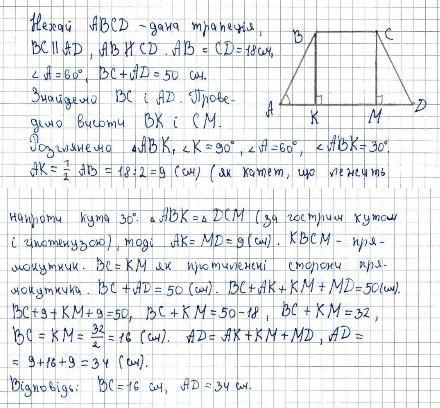 Нехай ABCD - дана трапеція,
BC || AD, AB ∦ CD. AB = CD = 18 см,
∠A = 60°, BC + AD = 50 см.
Знайдемо BC і AD. Прове-
демо висоти BK і CM.
Розглянемо △ABK, ∠K = 90°, ∠A = 60°, ∠ABK = 30°.
AK = 1/2 AB = 18 : 2 = 9 (см) (як катет, що лежить
B
C
A
K
M
D
напроти кута 30°. △ABK = △DCM (за гострим кутом
і гіпотенузою), тоді AK = MD = 9 (см). KBCM - пря-
мокутник. BC = KM як протилежні сторони пря-
мокутника. BC + AD = 50 (см). BC + AK + KM + MD = 50 (см).
BC + 9 + KM + 9 = 50, BC + KM = 50 - 18, BC + KM = 32,
BC = KM = 32/2 = 16 (см). AD = AK + KM + MD, AD =
= 9 + 16 + 9 = 34 (см).
Відповідь: BC = 16 см, AD = 34 см.